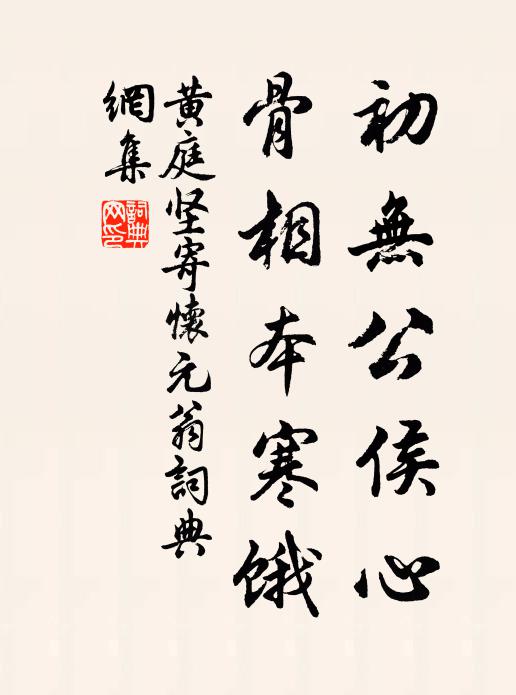 初無公侯心
骨相本寒餓
黄庭坚寄懷元翁詞典
網集
詞典
网印